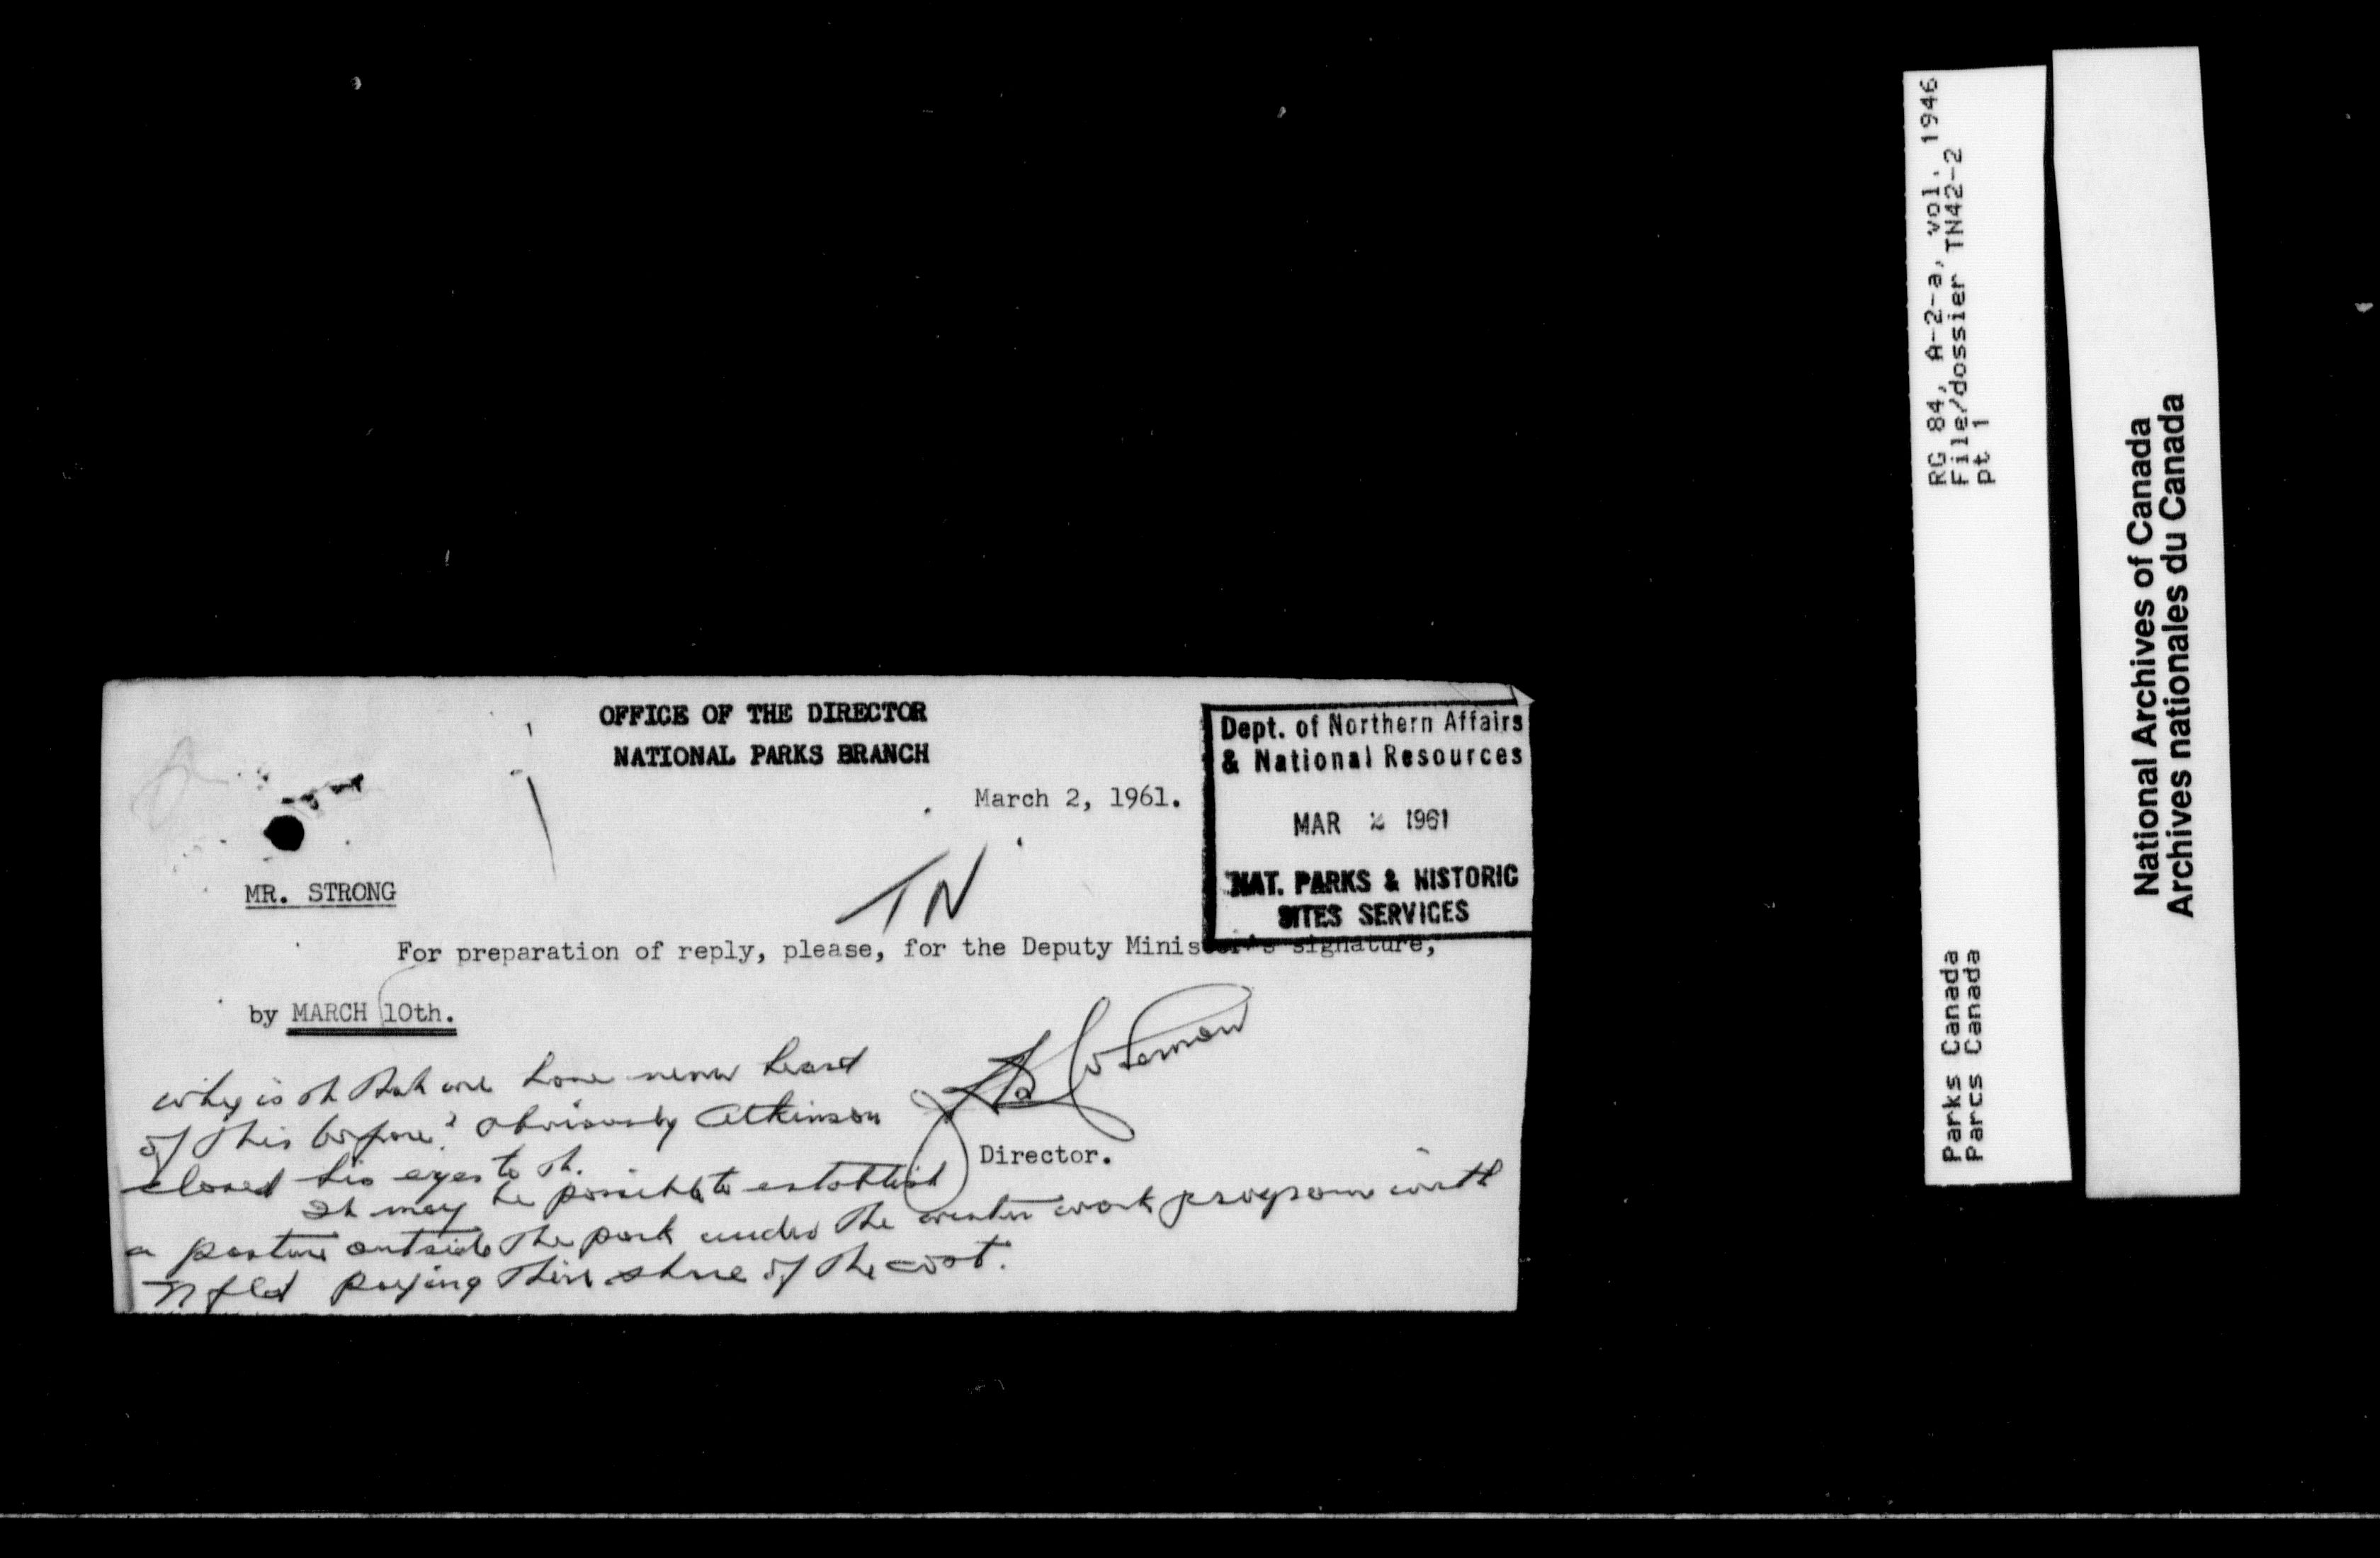 OFFICE OF THE DIRECTOR
NATIONAL PARKS BRANCH
March 2, 1961.
Dept. of Northern Affairs
& National Resources
MAR 2 1961
NAT. PARKS & HISTORIC
SITES SERVICES
TN
MR. STRONG
For preparation of reply, please, for the Deputy Minister's signature,
by MARCH 10th.
Coleman
Director.
why is it that we have never heard
of this before? Obviously Atkinson
closed his eyes to it.
It may be possible to establish
a pasture outside the park under the winter work program with
Nfld paying their share of the cost.
RG 84, A-2-a, vol. 1946
File/dossier TN42-2
pt 1
Parks Canada
Parcs Canada
National Archives of Canada
Archives nationales du Canada